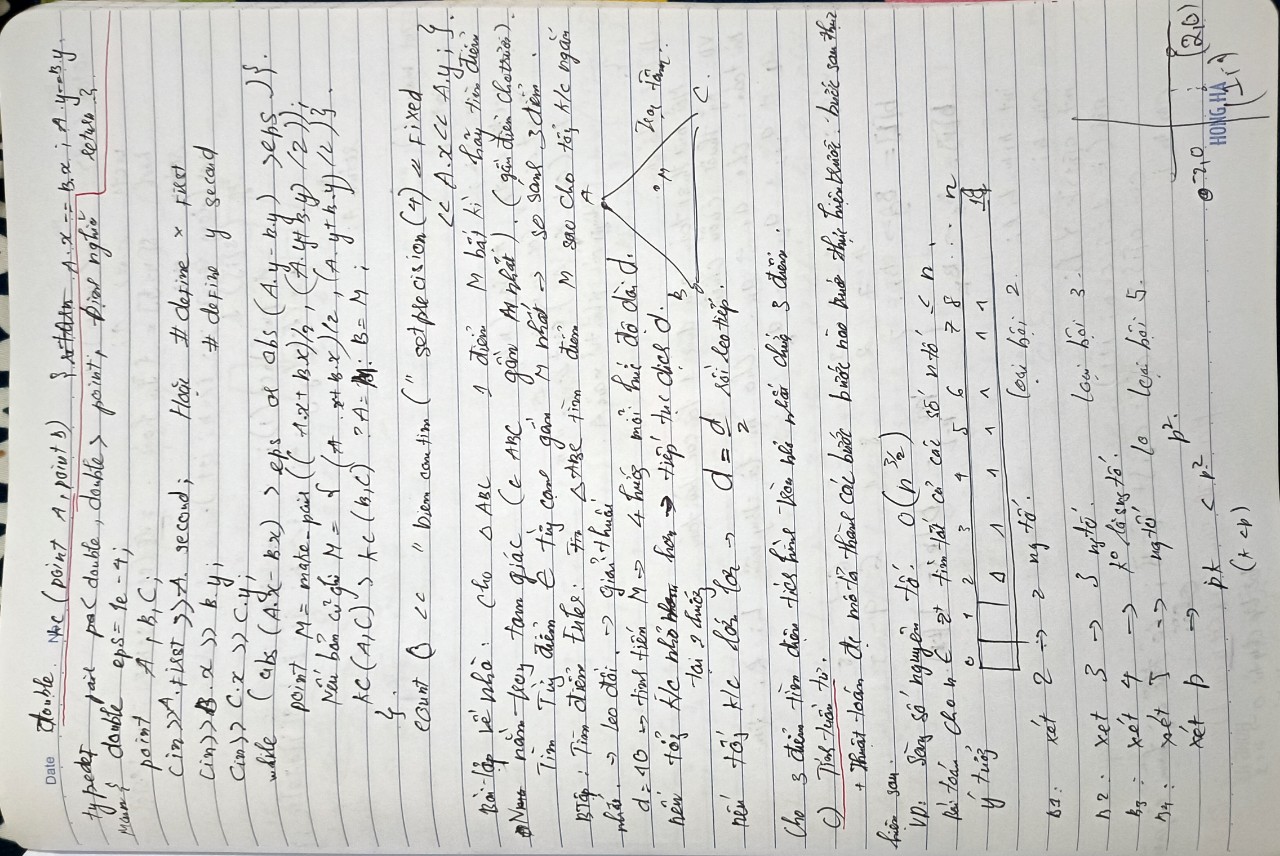 Date No.
double kc (point A, point B) { return A.x == B.x ; A.y==B.y
return }
typedef pair pa< double, double > point; Định nghĩa
Main { double eps = 1e-4;
point A, B, C;
Cin >> A.first >> A. second; Hoặc # define x first
Cin >> B.x >> B.y; # define y second
Cin >> C.x >> C.y;
while (abs (A.x - B.x) > eps or abs (A.y - B.y) > eps ) {
point M = make-pair (( A.x + B.x)/2, (A.y + B.y) /2 ));
Nếu bản cũ ghi M = { (A .x + B.x)/2, (A.y + B.y) /2 ) }.
KC (A, C) > kc (B, C) ? A = M : B = M ;
}.
count () << " Diem can tim (" setprecision (4) << Fixed
<< A.x << A.y ; }.
Bài tập về nhà : Cho △ ABC 1 điểm M bất kì hãy tìm điểm
nằm trong tam giác (∈ ABC gần M nhất ). (gần điểm cho trước).
Tìm từng điểm ∈ từng cạnh gần M nhất → so sánh 3 điểm .
BTập : Tìm điểm △ ABC tìm điểm M sao cho tổng k/c ngắn
nhất . → leo đồi . → giải thuật
d = 10 → tịnh tiến M → 4 hướng mỗi hướng độ dài d.
nếu tổng k/c nhỏ hơn → tiếp tục dịch d.
tại 2 hướng
nếu tổng k/c lớn hơn → d = d/2 rồi leo tiếp .
A
M Trọng tâm.
B
C.
Cho 3 điểm tìm diện tích hình tròn nhỏ nhất chứa 3 điểm .
c) Tính tuần tự .
+ Thuật toán đc mô tả thành các bước bước nào trước thực hiện trước . bước sau thực
hiện sau .
VD: Sàng số nguyên tố . O(n 3/2)
Bài toán cho n ∈ Z+ tìm tất cả các số ntố ≤ n .
ý tưởng 0 1 2 3 4 5 6 7 8 ... n
1 1 1 1 1 1 1
B1: xét 2 → 2 ng tố . loại bội 2.
B2 : xet 3 → 3 ngtố . loại bội 3 .
B3 : xét 4 → ko là ng tố .
B4 : xét 5 → ngtố loại bội 5 .
xét p → p².
p.k < p²
(k < p)
-2,0 (2,0)
HONG HA